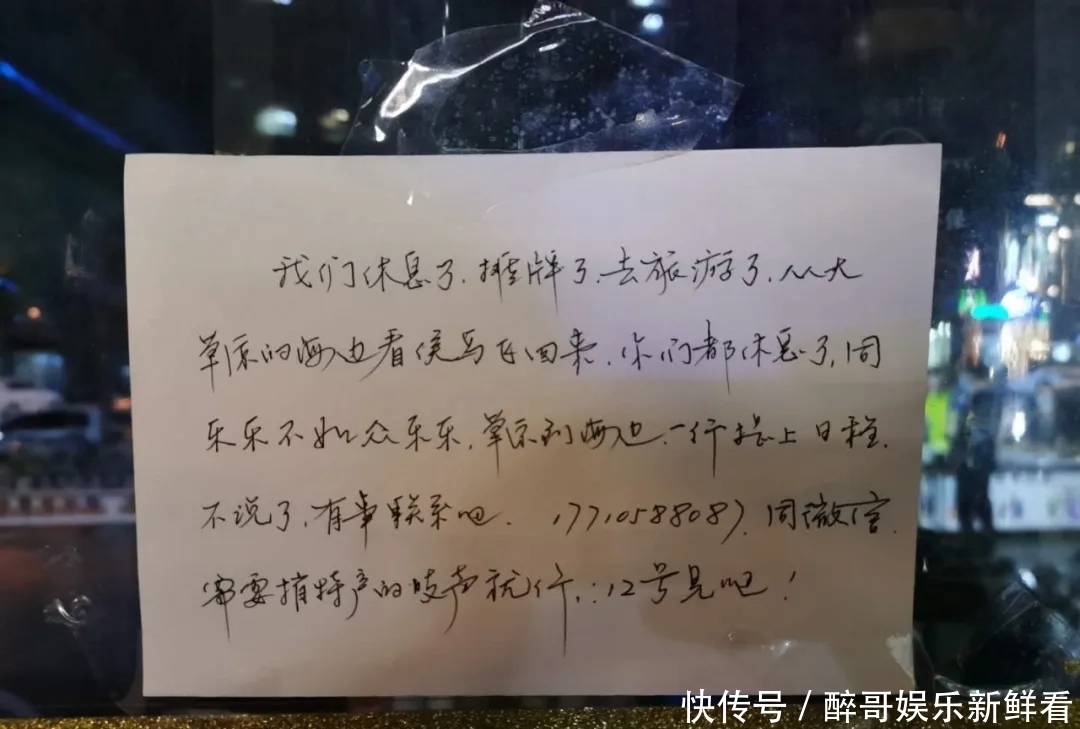 我们休息了.摧牌了.去旅游了.从大
草原的海边看候鸟飞回来.你们都休息了,同
乐乐不如众乐乐.草原到海边.一行提上日程.
不说了.有事联系吧. 17710588087.同微信.
需要捎特产的吱声就行,:12号见吧!
快传号 / 醉哥娱乐新鲜看